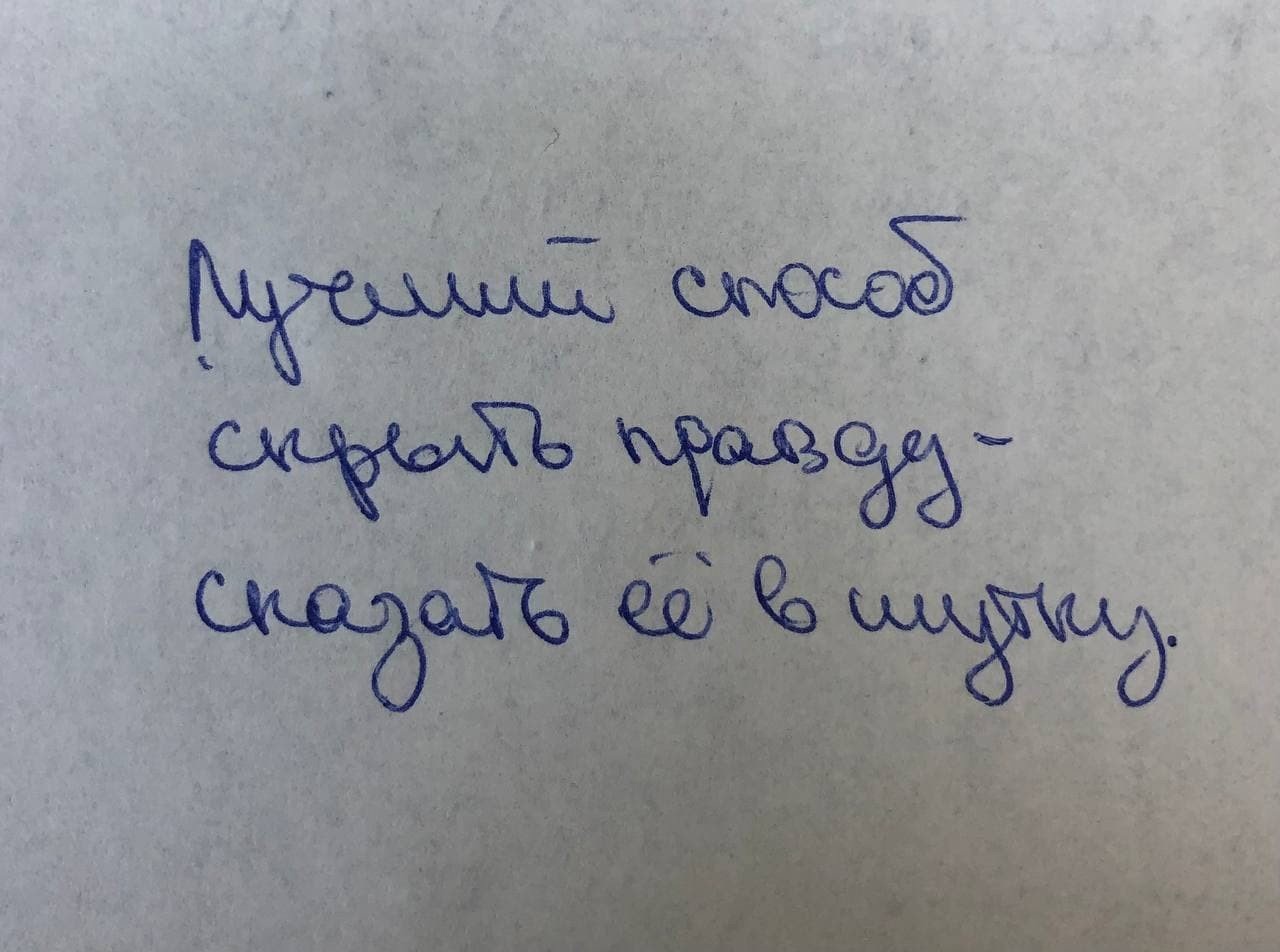 Лучший способ
скрыть правду -
сказать её в шутку.